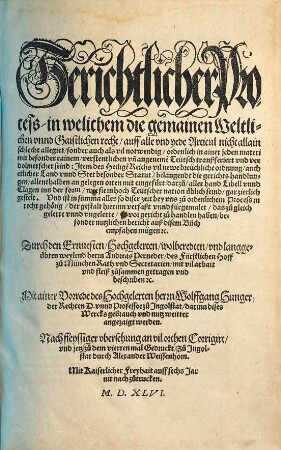 Gerichtlicher Pro
ceß / in welichem die gemainen Weltli-
chen vnnd Gaistlichen recht / auff alle vnd yede Articul nicht allain
schlecht allegirt / sonder auch als vil notwendig / ordenlich in ainer yeden materi
mit besonder rainem / verstentlichen vñ angenemē Teutsch transferiert vnd ver
dolmetschet seind : Item des Heilige Reichs vil newe breüchliche ordnung / auch
etlicher Land vnnd Stet besonder Statut / belangende die gerichts handlhun-
gen / allenthalben an gelegen orten mit eingefürt / darzů / aller hand Libell vnnd
Clagen inn der form / wie sy im hoch Teutscher nation üblich seind / gar zierlich
gestelt. Vnd ist in summa alles so diser zeit bey vns zů ordenlichem Process in
recht gehörig / der gestalt hierinn verfaßt vnnd fürgemalet / das zů gleich
gelerte vnnd vngelerte / so vor gericht zů handlen haben / be-
sonder nutzlichen bericht auß disem Bůch
empfahen mügen ꝛc.
Durch den Ernuesten / Hochgelerten / wolberedten / vnd langge-
übten weylend herrn Andreas Perneder / des Fürstlichen Hoffs
zů München Rath vnd Secretarien / mit vil arbait
vnd fleiß zůsammen getragen vnd
beschriben ꝛc.
Mit ainer Vorrede des Hochgelerten herrn Wolffgang Hunger,
der Rechten D. vnnd Professor zů Ingolstat, darinn dises
Wercks gebrauch vnd nutz weitter
angezaigt werden.
Nach fleyssiger vbersehung an vil orthen Corrigirt /
vnd jetz zů dem vierten mal Gedruckt / zů Ingol-
stat durch Alexander Weissenhorn.
Mit Kaiserlicher Freyhait auff sechs Jar
nit nachzůtrucken.
M. D. XLVI.